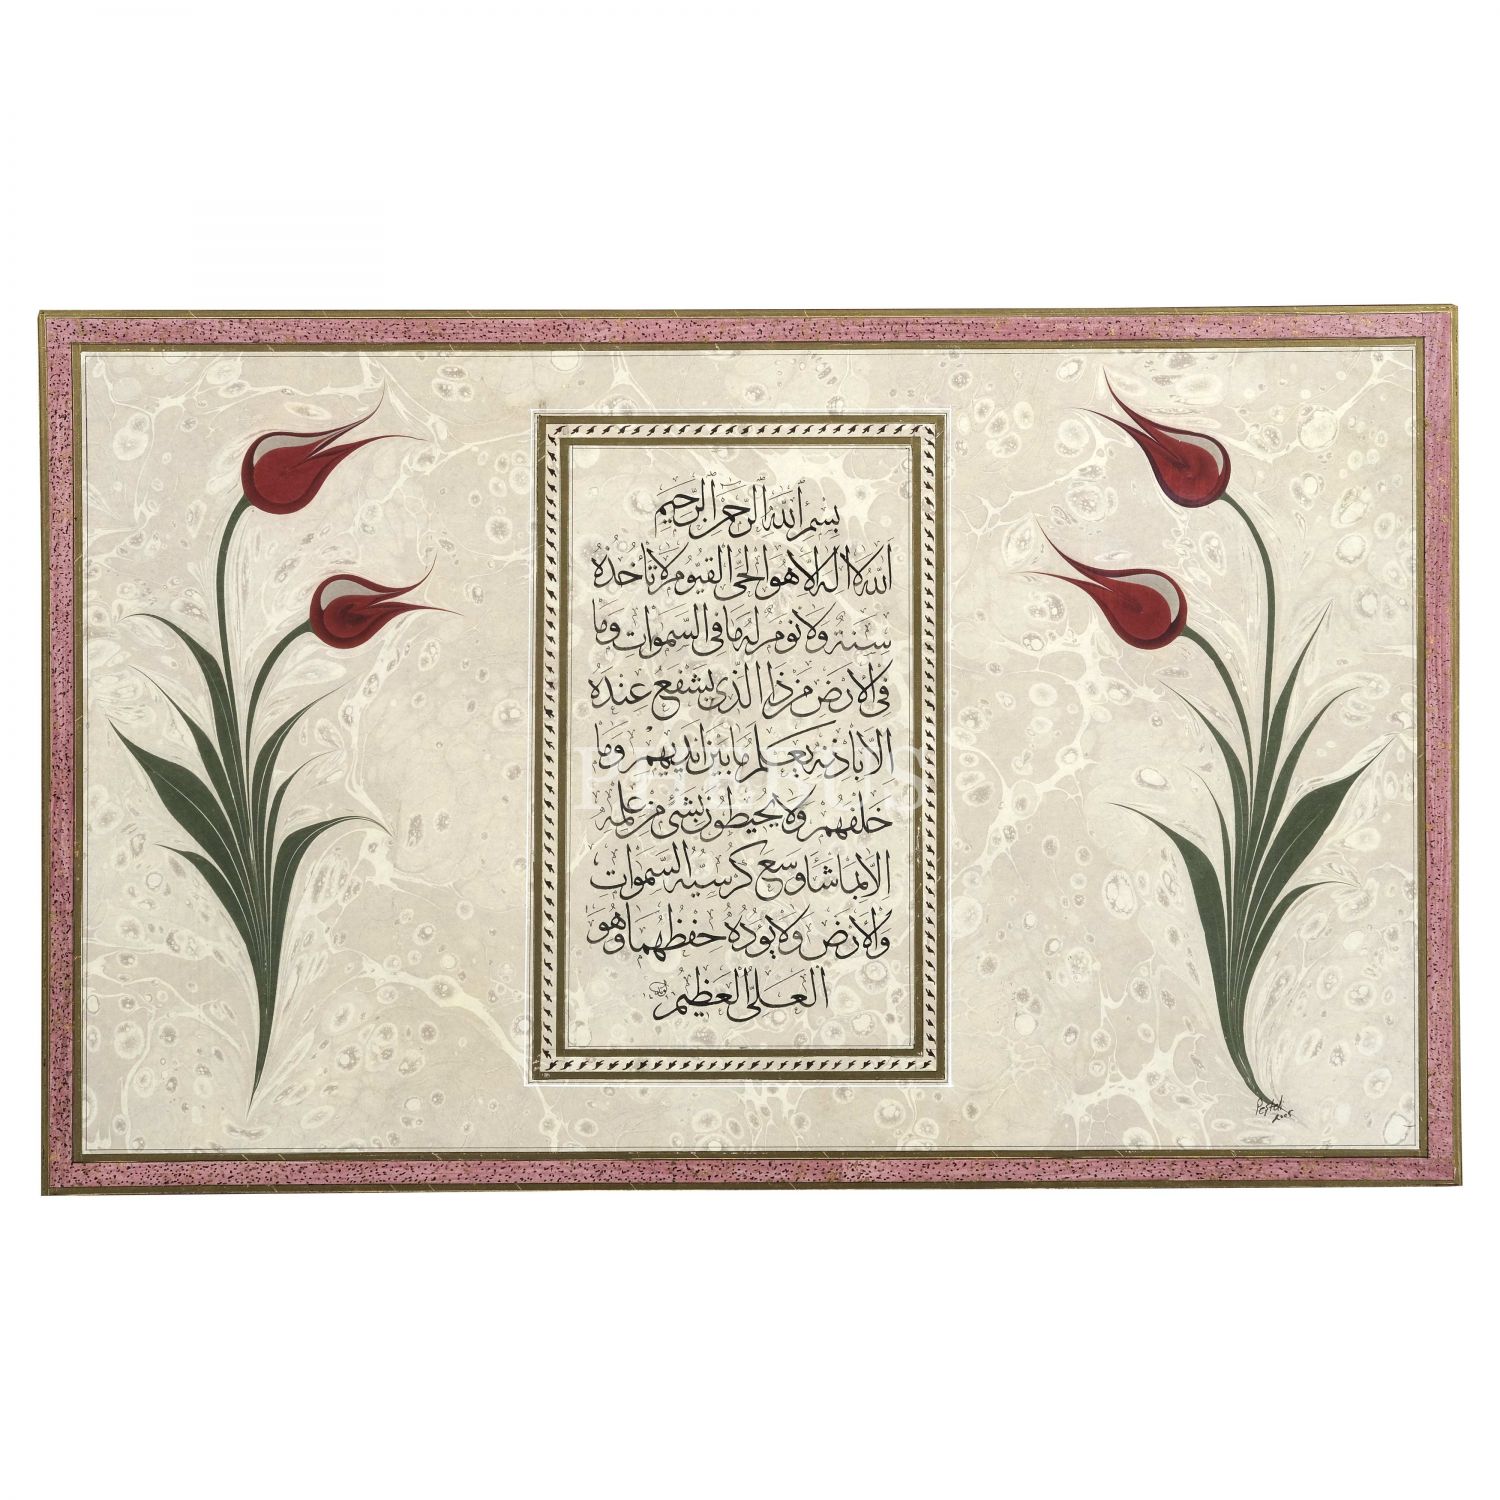 بسم الله الرحمن الرحيم
الله لا اله الا هو الحي القيوم لا تأخذه
سنة ولا نوم له ما في السموات وما
في الارض من ذا الذي يشفع عنده
الا باذنه يعلم ما بين ايديهم وما
خلفهم ولا يحيطون بشئ من علمه
الا بما شا وسع كرسيه السموات
والارض ولا يؤده حفظهما وهو
العلي العظيم
PHEBUS